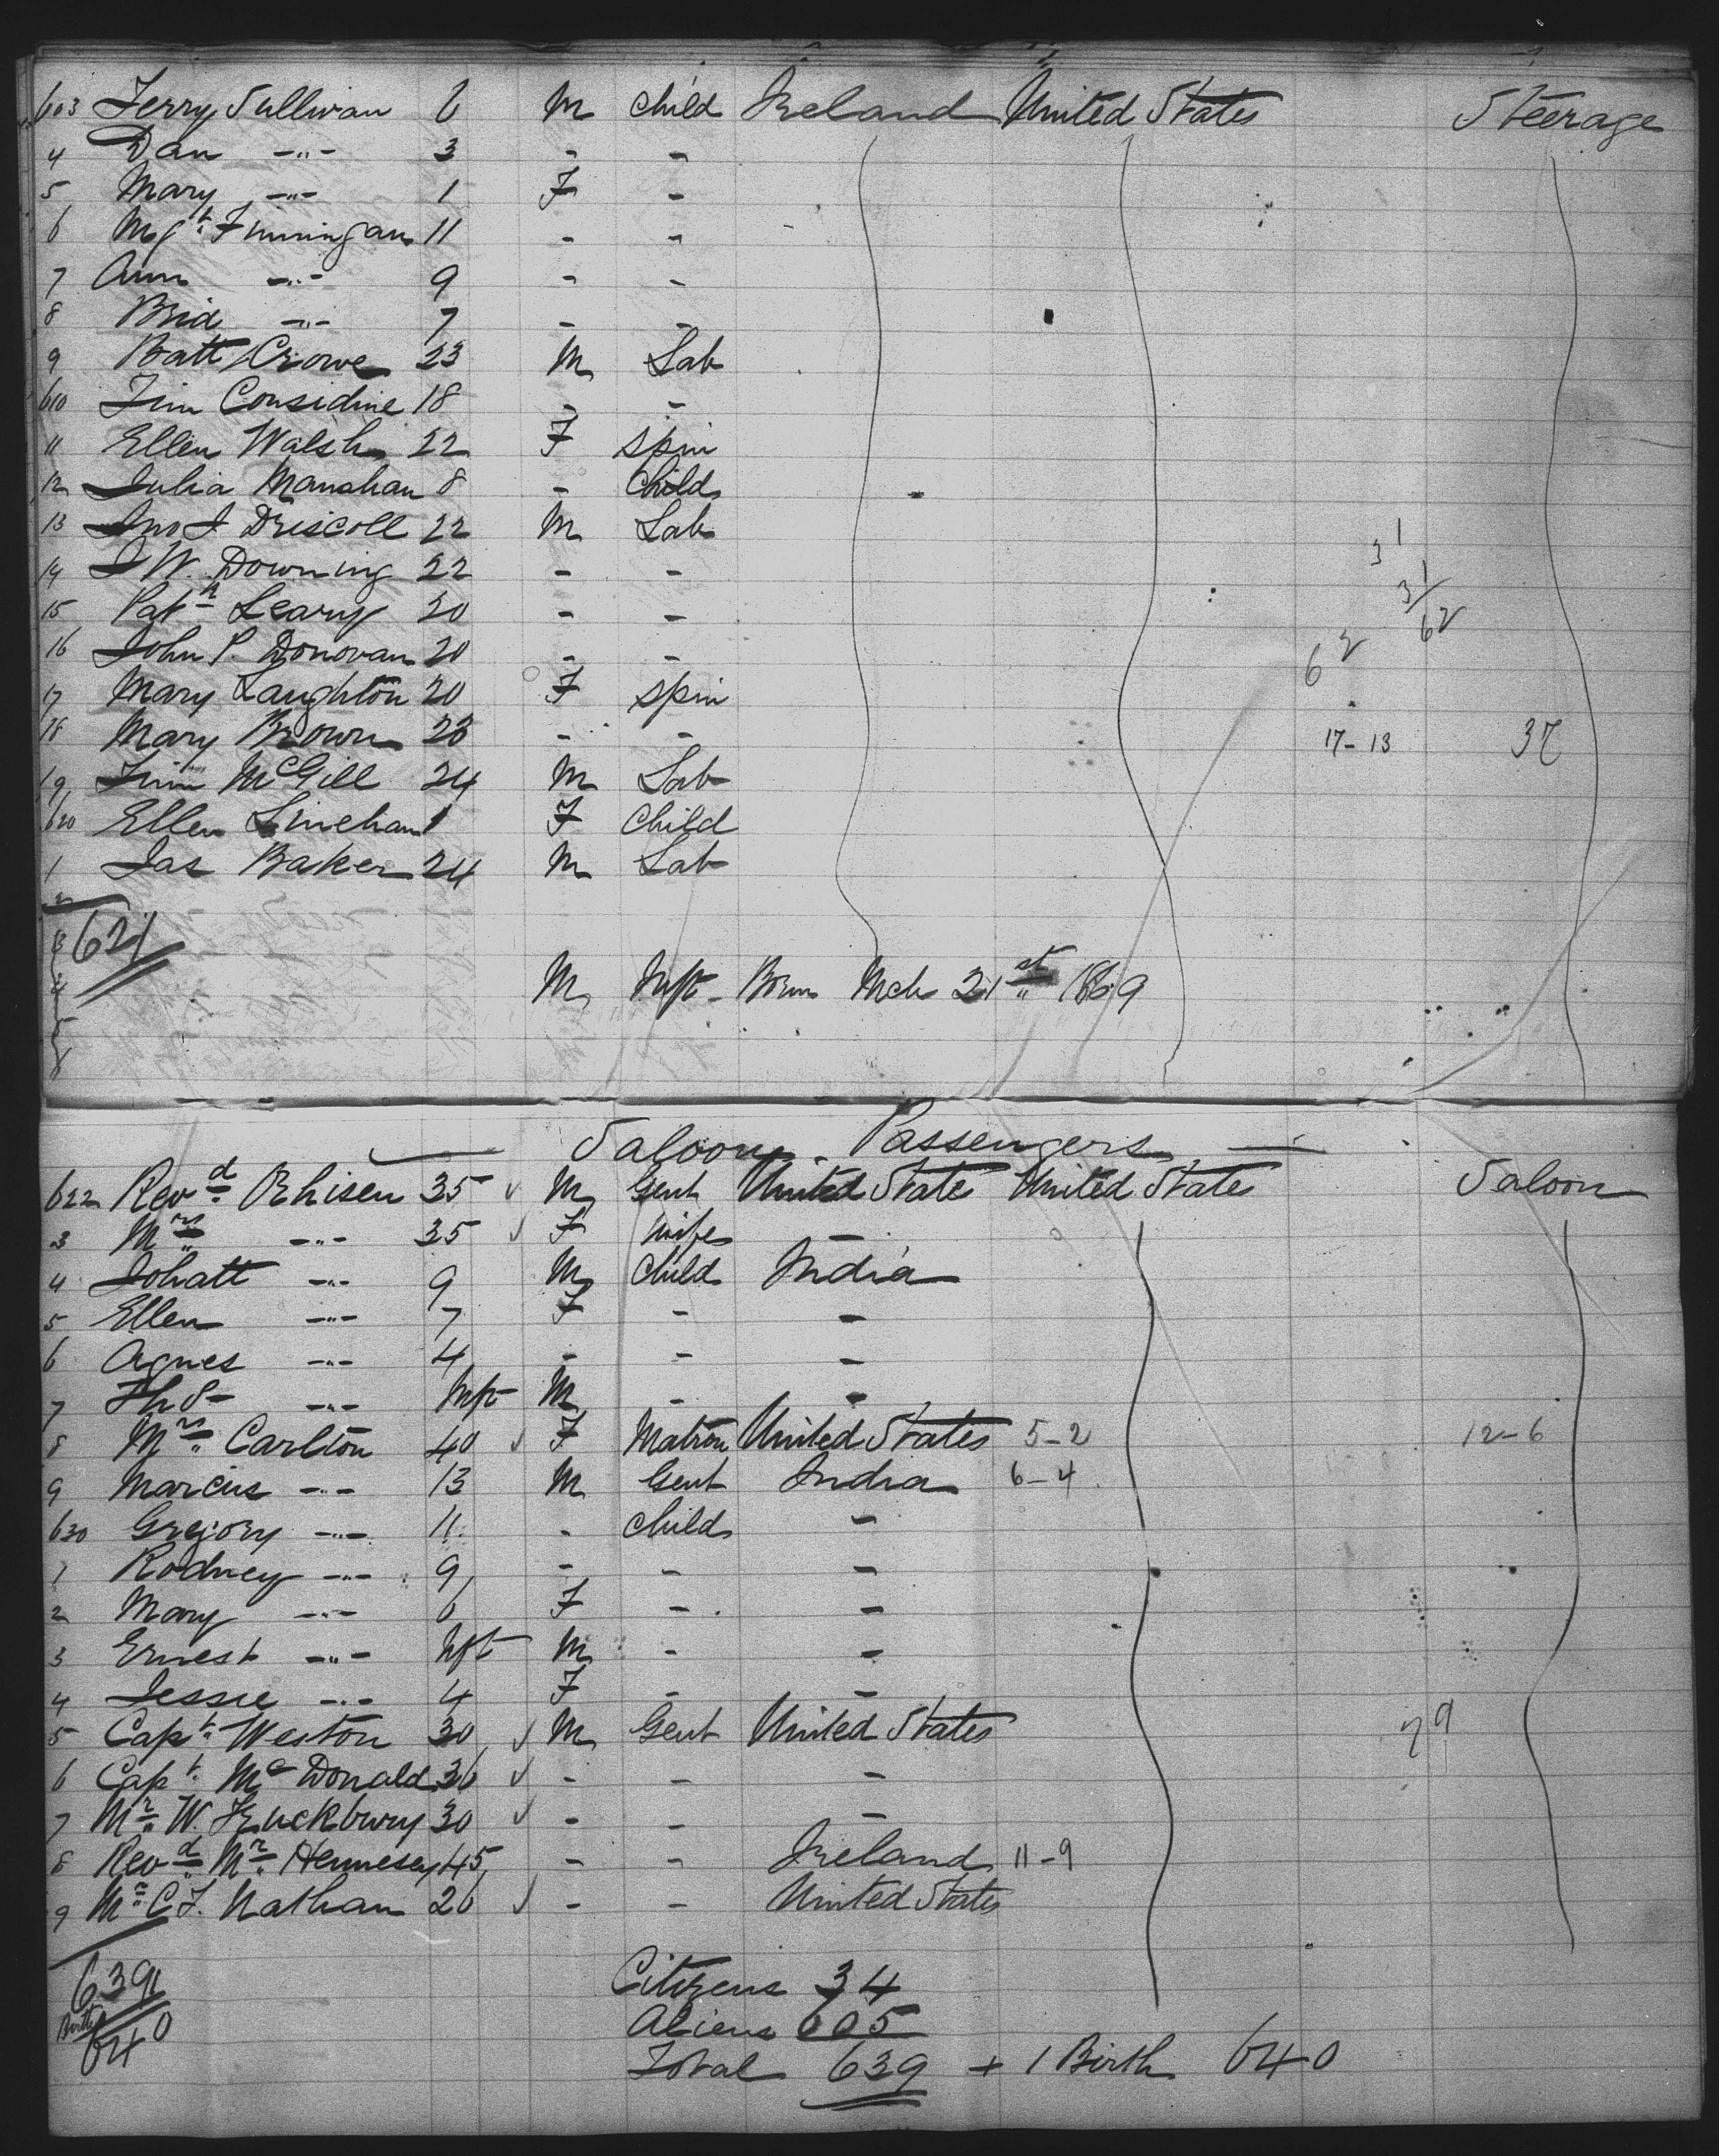 603 Jerry Sullivan 6 M Child Ireland United States Steerage
4 Dan -"- 3 - -
5 Mary -"- 1 F -
6 Mgt Finningan 11 - -
7 Ann -"- 9 - -
8 Brid -"- 7 - -
9 Batt Crowe 23 M Lab
610 Tim Considine 18 - -
11 Ellen Walsh 22 F Spin
12 Julia Manahan 8 - Child
13 Jno J Driscoll 22 M Lab
31
14 J W. Downing 22 - -
31
15 Patk Leary 20 - -
62
16 John P. Donovan 20 - -
62
17 Mary Laughton 20 F Spin
18 Mary Brown 23 - - 17-13 37
19 Jim McGill 24 M Lab
620 Ellen Linehan 1 F Child
1 Jas Baker 24 M Lab
2
3 621
4 M Inft - Born Mch 21st 1869
5
6
Saloon Passengers
622 Revd Rhisen 35 M Gent United State United States Saloon
3 Mrs -"- 35 F Wife -
4 Johatt -"- 9 M Child India
5 Ellen -"- 7 F - -
6 Agnes -"- 4 - - -
7 Ths -"- Inft M - -
8 Mrs Carlton 40 F Matron United States 5-2 12-6
9 Marcus -"- 13 M Gent India 6-4
630 Gregory -"- 11 - Child -
1 Rodney -"- 9 - - -
2 Mary -"- 6 F - -
3 Ernest -"- Inft M - -
4 Jessie -"- 4 F - -
5 Capt Weston 30 M Gent United States 79
6 Capt McDonald 36 - - -
7 Mr W. 30 - - -
8 Revd Mr Hennesey 45 - - Ireland 11-9
9 Mr C J. Nathan 26 - - United States
639 Citizens 34
Birth 640 Aliens 605
Total 639 + 1 Birth 640